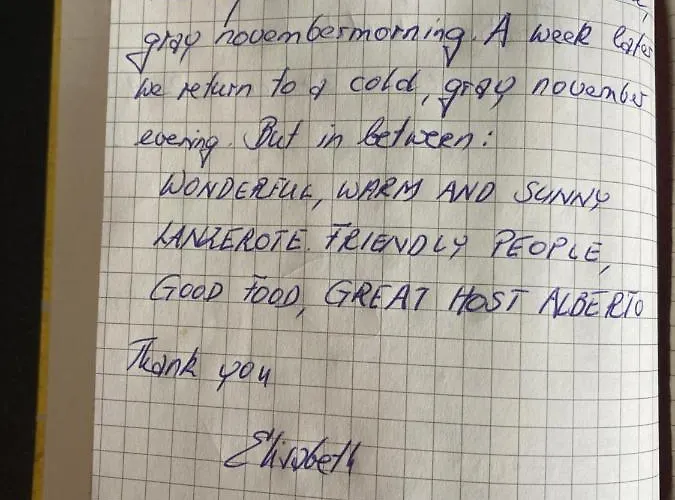 gray novembermorning. A week later
we return to a cold, gray november
evening. But in between:
WONDERFUL, WARM AND SUNNY
LANZEROTE. FRIENDLY PEOPLE,
GOOD FOOD, GREAT HOST ALBERTO
Thank you
Elisabeth